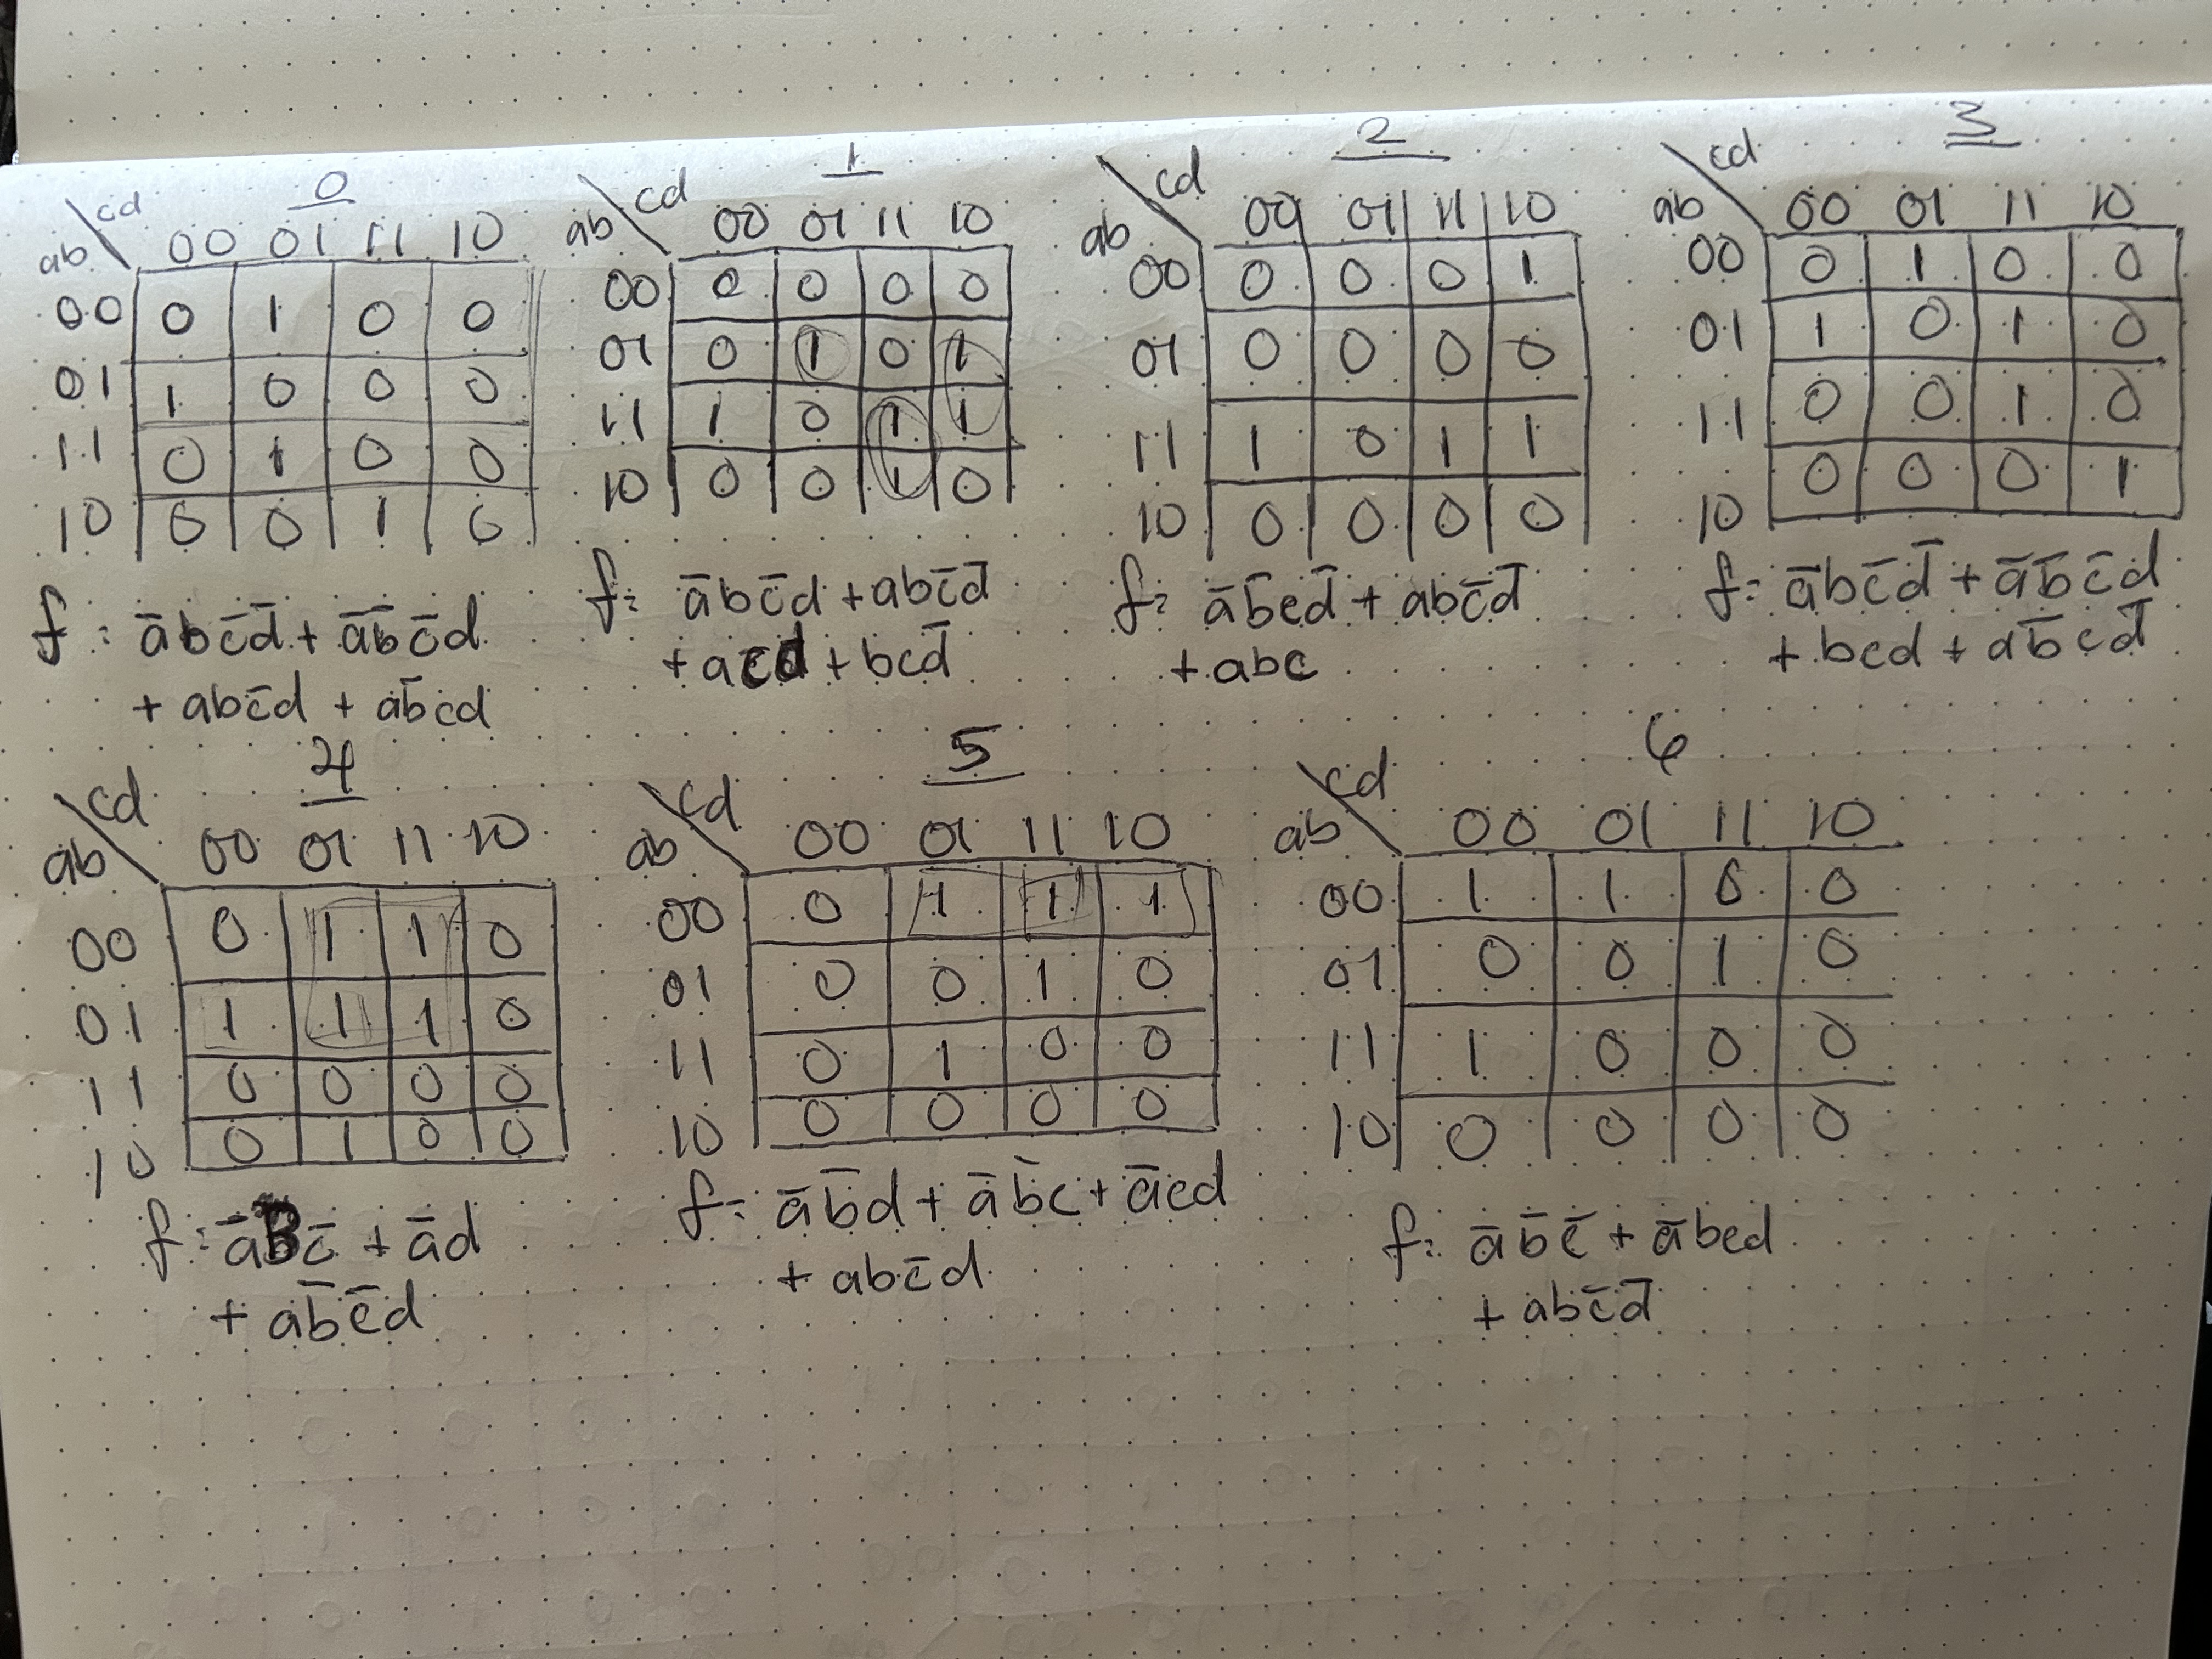 0
ab \ cd 00 01 11 10
00 0 1 0 0
01 1 0 0 0
11 0 1 0 0
10 0 0 1 0
f = a̅bc̅d̅ + a̅b̅c̅d
+ abc̅d + ab̅cd
1
ab \ cd 00 01 11 10
00 0 0 0 0
01 0 1 0 1
11 1 0 1 1
10 0 0 1 0
f = a̅bc̅d + abc̅d̅
+ acd + bcd̅
2
ab \ cd 00 01 11 10
00 0 0 0 1
01 0 0 0 0
11 1 0 1 1
10 0 0 0 0
f = a̅b̅cd̅ + abc̅d̅
+ abc
3
ab \ cd 00 01 11 10
00 0 1 0 0
01 1 0 1 0
11 0 0 1 0
10 0 0 0 1
f = a̅bc̅d̅ + a̅b̅c̅d
+ bcd + ab̅cd̅
4
ab \ cd 00 01 11 10
00 0 1 1 0
01 1 1 1 0
11 0 0 0 0
10 0 1 0 0
f = a̅Bc̅ + a̅d
+ ab̅c̅d
5
ab \ cd 00 01 11 10
00 0 1 1 1
01 0 0 1 0
11 0 1 0 0
10 0 0 0 0
f = a̅b̅d + a̅b̅c + a̅cd
+ abc̅d
6
ab \ cd 00 01 11 10
00 1 1 0 0
01 0 0 1 0
11 1 0 0 0
10 0 0 0 0
f = a̅b̅c̅ + a̅bcd
+ abc̅d̅